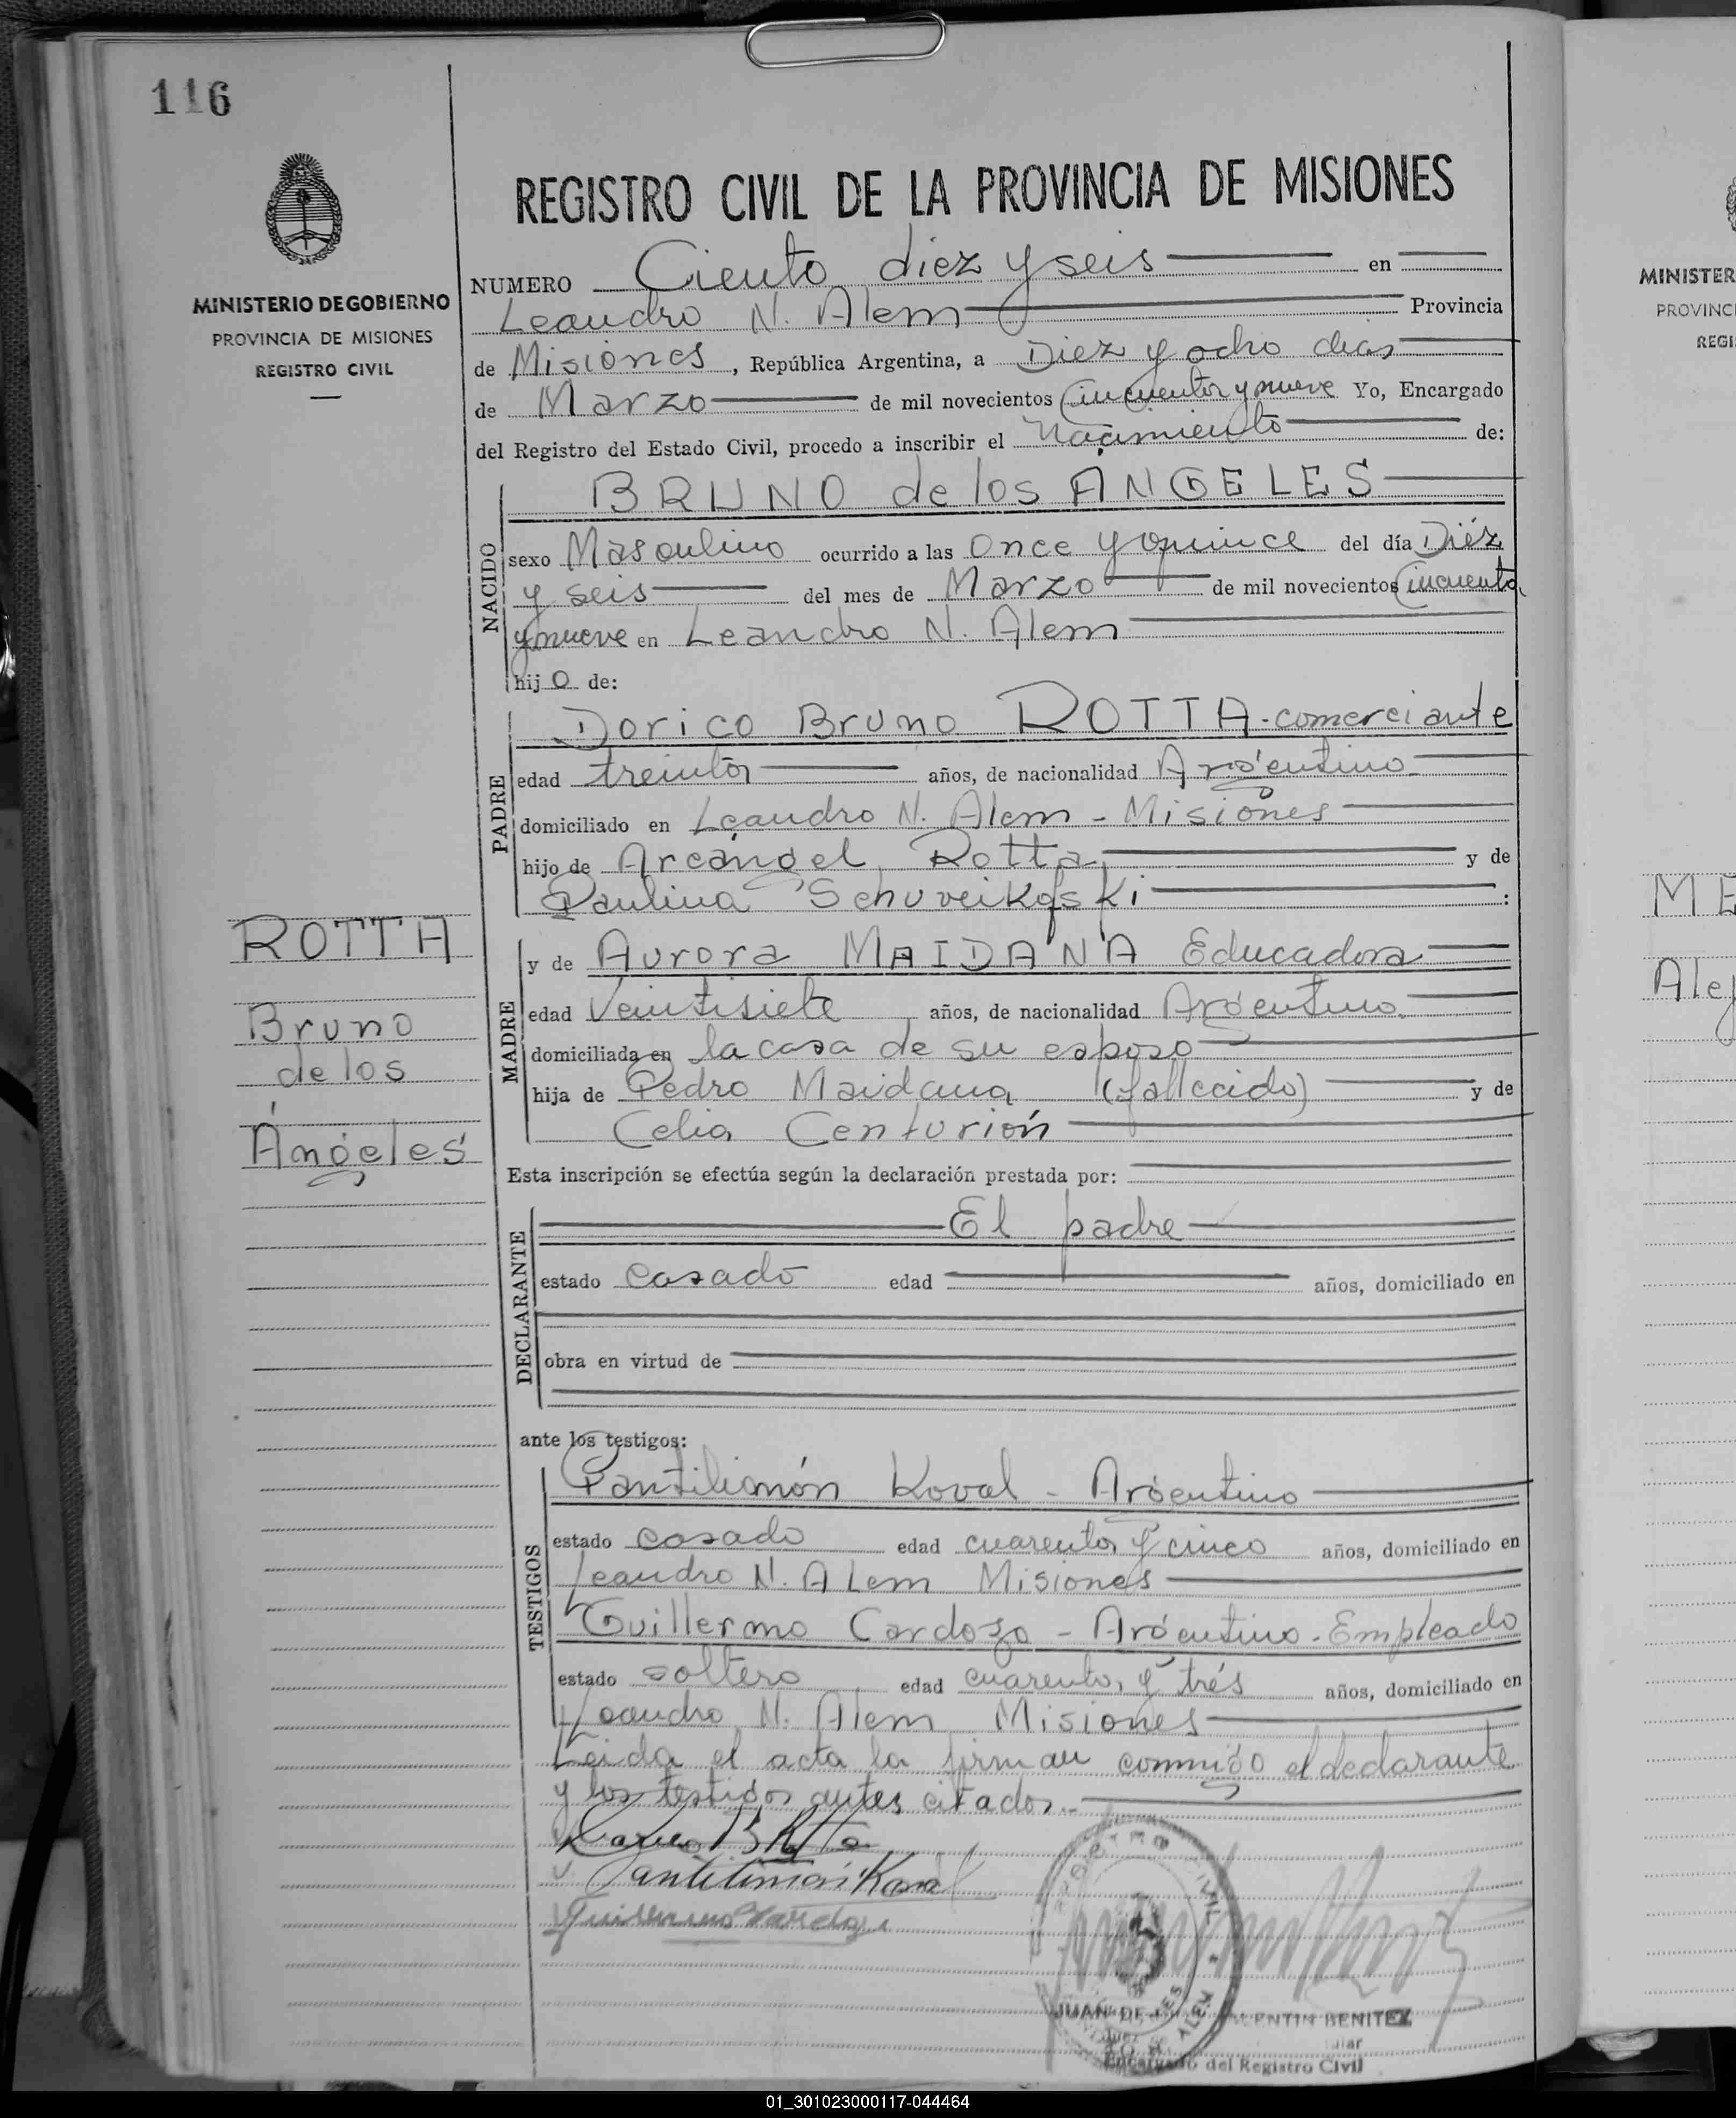 116
MINISTERIO DE GOBIERNO
PROVINCIA DE MISIONES
REGISTRO CIVIL
REGISTRO CIVIL DE LA PROVINCIA DE MISIONES
NUMERO Ciento diez y seis en
Leandro N. Alem Provincia
de Misiones, República Argentina, a Diez y ocho dias
de Marzo de mil novecientos Cincuenta y nueve Yo, Encargado
del Registro del Estado Civil, procedo a inscribir el Nacimiento de:
NACIDO
BRUNO de los ÁNGELES
sexo Masculino ocurrido a las Once y quince del día Diéz
y seis del mes de Marzo de mil novecientos Cincuenta
y nueve en Leandro N. Alem
hijo de:
PADRE
Dorico Bruno ROTTA - comerciante
edad treinta años, de nacionalidad Argentino
domiciliado en Leandro N. Alem - Misiones
hijo de Arcángel Rotta y de
Paulina Schuveikofski :
ROTTA
Bruno
de los
Ángeles
MADRE
y de Aurora MAIDANA Educadora
edad Veintisiete años, de nacionalidad Argentina
domiciliada en la casa de su esposo
hija de Pedro Maidana (fallecido) y de
Celia Centurión
Esta inscripción se efectúa según la declaración prestada por:
DECLARANTE
El padre
estado casado edad años, domiciliado en
obra en virtud de
ante los testigos:
TESTIGOS
Pantilimón Koval - Argentino
estado casado edad cuarenta y cinco años, domiciliado en
Leandro N. Alem Misiones
Guillermo Cardozo - Argentino - Empleado
estado soltero edad cuarenta y trés años, domiciliado en
Leandro N. Alem Misiones
Leida el acta la firman conmigo el declarante
y los testigos antes citados.-
Pantilimón Koval
Guillermo Cardozo
JUAN DE VALENTIN BENITEZ
Encargado del Registro Civil
MINISTER
PROVINC
REGI
ME
Alej
01_301023000117-044464